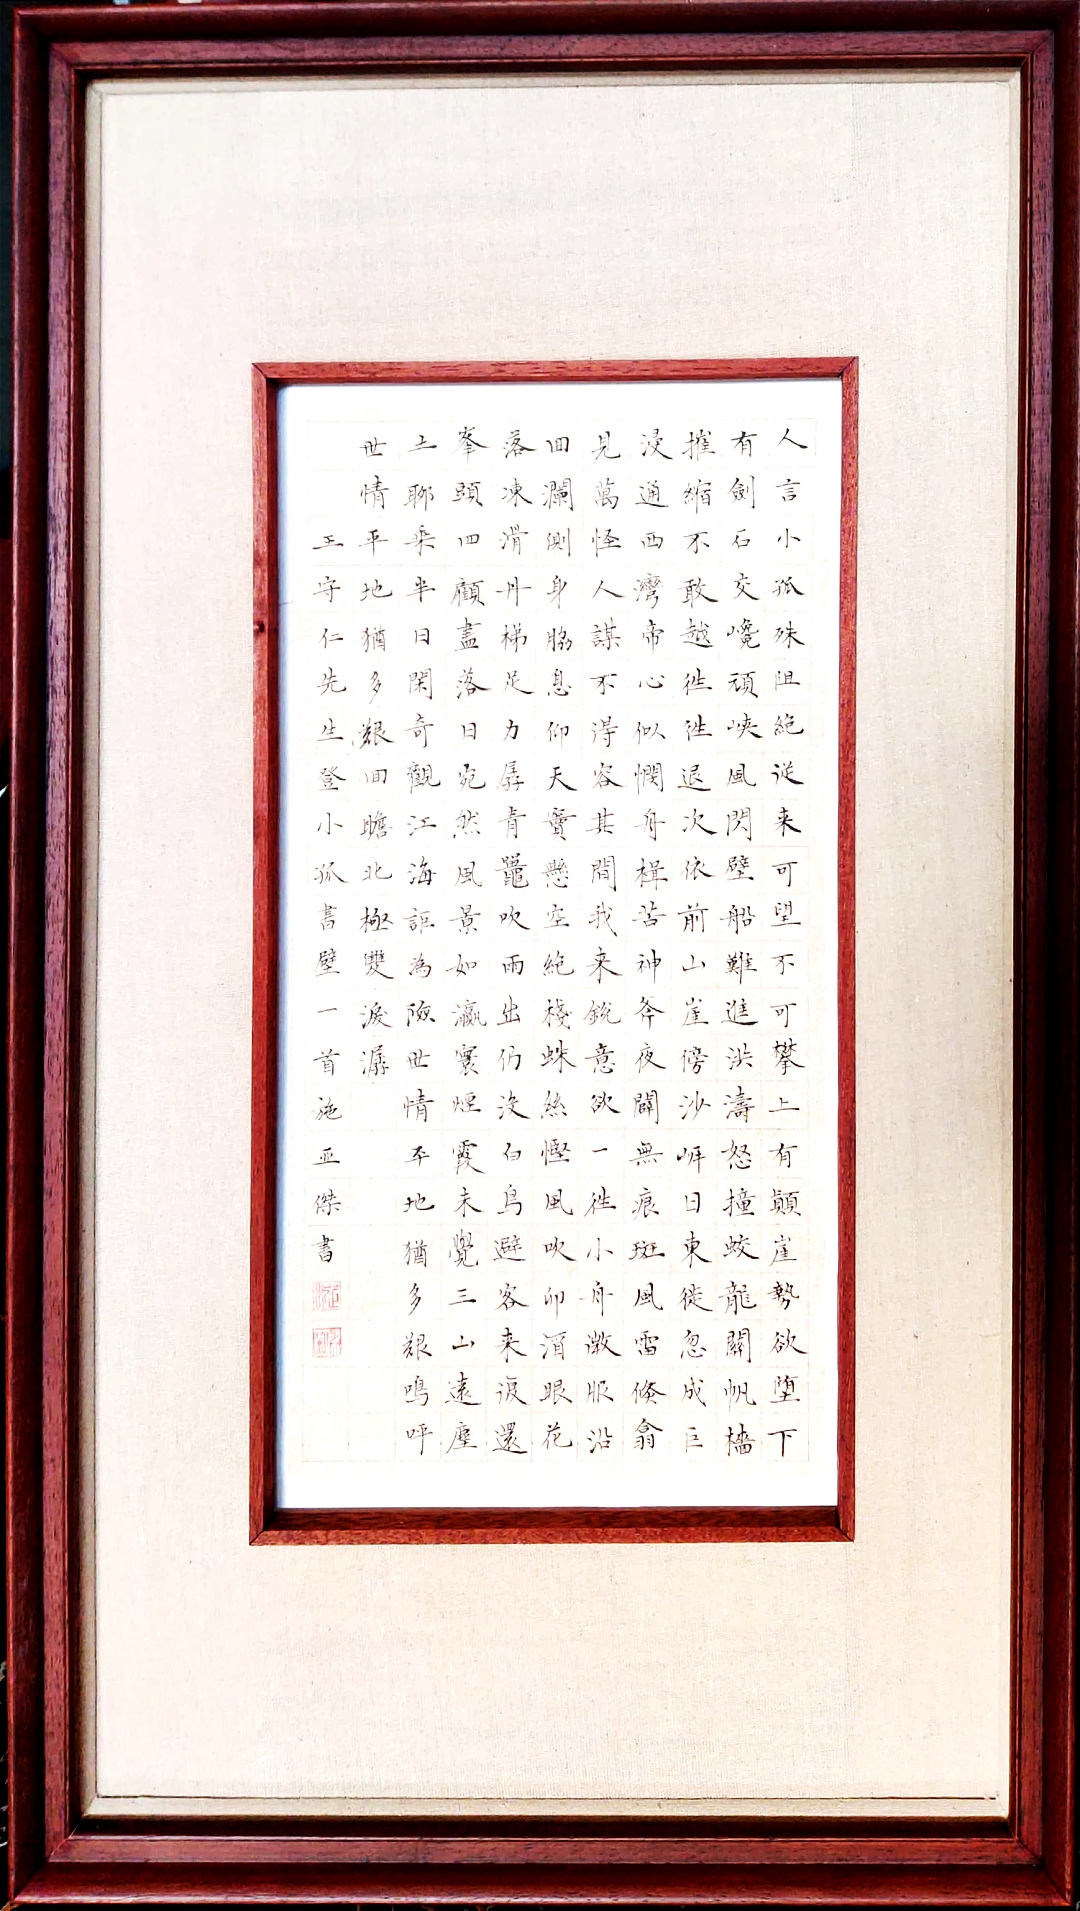 人言小孤殊阻絶従来可望不可攀上有顛崖勢欲堕下
有劍石交巉頑峽風閃壁船難進洪濤怒撞蛟龍關帆檣
摧縮不敢越徃徃退次依前山崖傍沙岸日東徙忽成巨
浸通西灣帝心似憫舟楫苦神斧夜闢無痕斑風雷倐翕
見萬怪人謀不得容其間我来銳意欲一徃小舟微服沿
回瀾側身脇息仰天竇懸空絶棧蛛絲慳風吹卯酒眼花
落凍滑丹梯足力孱青鼉吹雨出仍没白鳥避客来復還
峯頭四顧盡落日宛然風景如瀛寰煙霞未覺三山遠塵
土聊乘半日閑奇觀江海詎為險世情平地猶多艱嗚呼
世情平地猶多艱回瞻北極雙淚潺
王守仁先生登小孤書壁一首施亚傑書